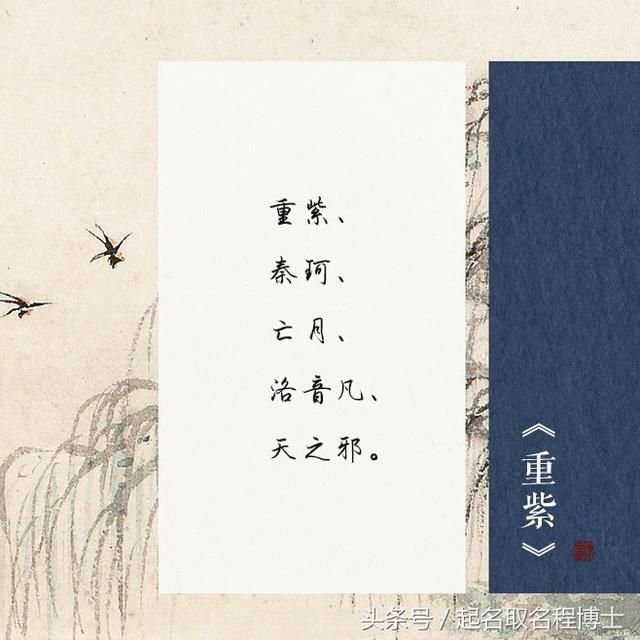 重紫、
秦珂、
亡月、
洛音凡、
天之邪。
《重紫》
头条号/起名取名程博士